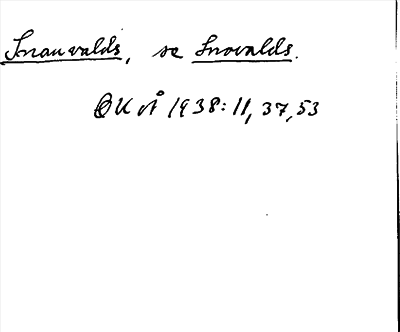 Snauvalds, se Snovalds.
ØK vÅ 1938: 11, 37, 53